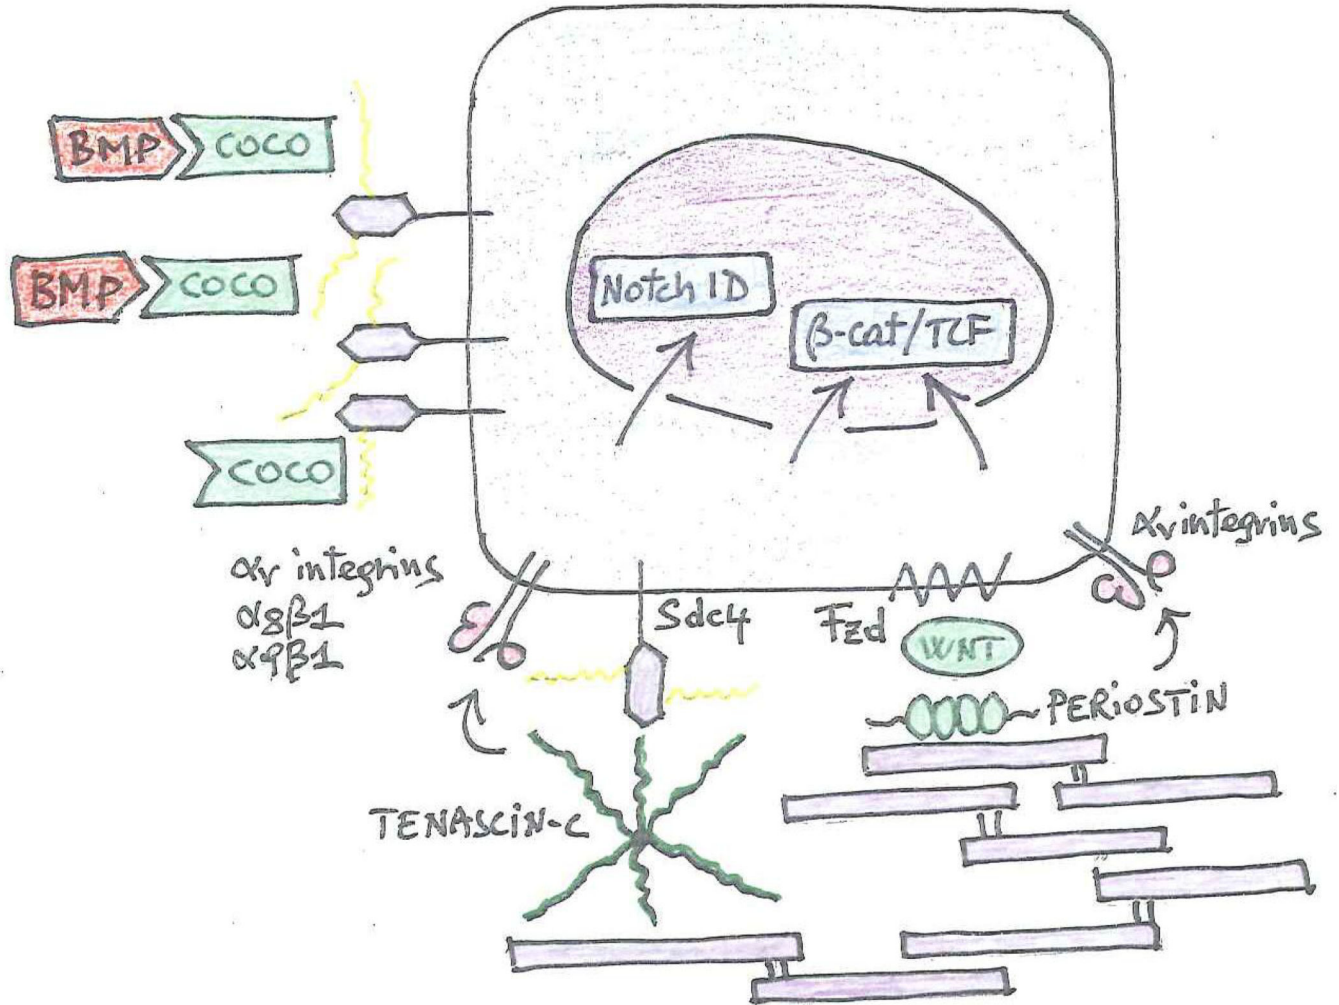 BMP COCO
BMP COCO
COCO
Notch ID
β-cat/TCF
αv integrins
α8β1
α9β1
Sdc4
Fzd
WNT
αv integrins
PERIOSTIN
TENASCIN-C